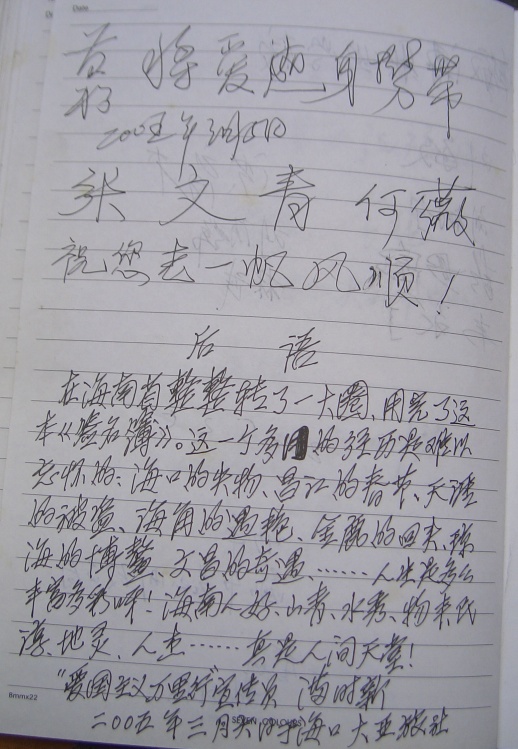 Date
将爱
2005年3月5日
张文青 何薇
祝您去一帆风顺!
后语
在海南省整整转了一大圈、用完了这
本《签名簿》。这一个多月的经历是难以
忘怀的:海口的失物、昌江的春节、天涯
的被盗、海角的遇艳、的回来、琼
海的博鳌、文昌的奇遇、……人生是多么
丰富多彩呀!海南人好、山青、水秀、物丰民
淳、地灵、人杰……真是人间天堂!
Bmmx22
“爱国主义万里行”宣传员 时新
SEVEN COLOURS
二00五年三月六日于海口 大亚旅社